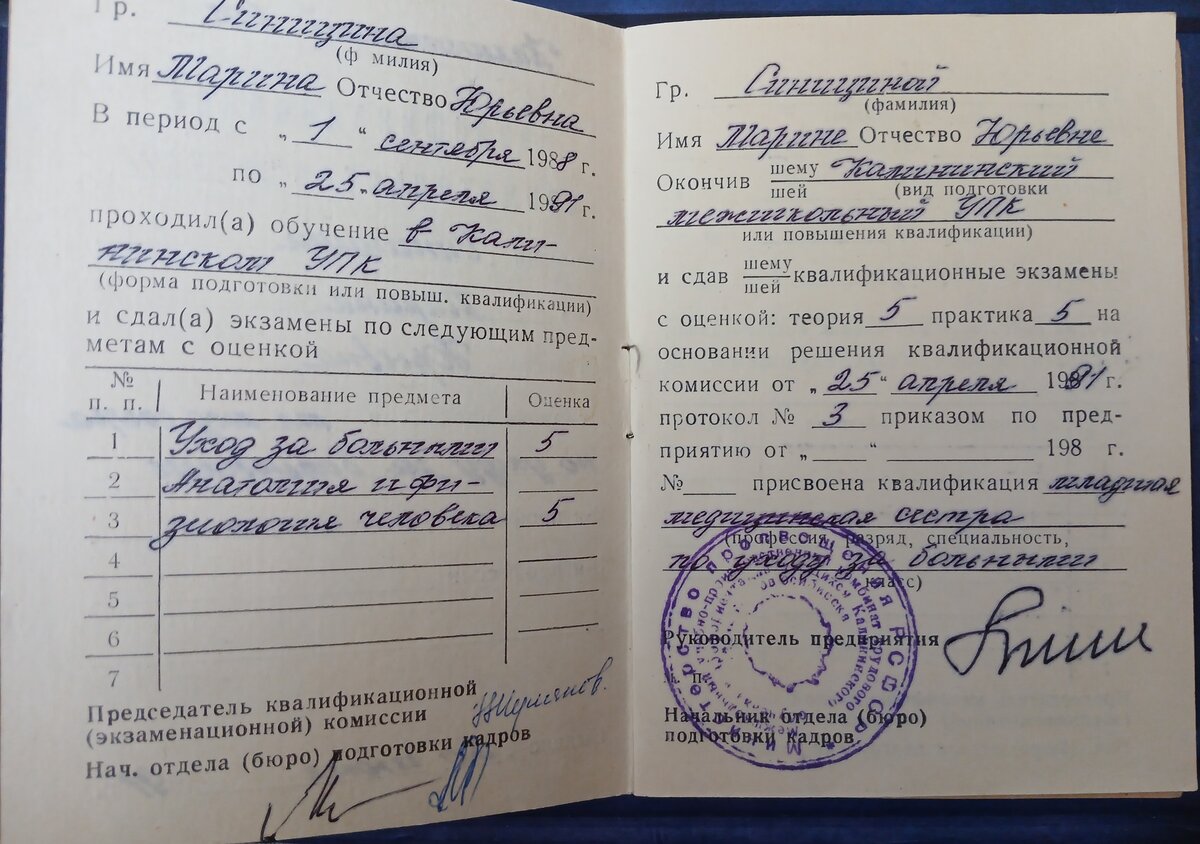 Гр. Синицина
(ф милия)
Имя Марина Отчество Юрьевна
В период с „ 1 “ сентября 1988 г.
по „ 25 „ апреля 1991 г.
проходил(а) обучение в Кали-
нинском УПК
(форма подготовки или повыш. квалификации)
и сдал(а) экзамены по следующим пред-
метам с оценкой
№ п. п. Наименование предмета Оценка
1 Уход за больными 5
2 Анатомия и фи-
3 зиология человека 5
4
5
6
7
Председатель квалификационной
(экзаменационной) комиссии
Нач. отдела (бюро) подготовки кадров
Гр. Синициной
(фамилия)
Имя Марине Отчество Юрьевне
Окончив шему Калининский
шей (вид подготовки
межшкольный УПК
или повышения квалификации)
и сдав шему шей квалификационные экзамены
с оценкой: теория 5 практика 5 на
основании решения квалификационной
комиссии от „ 25 “ апреля 1991 г.
протокол № 3 приказом по пред-
приятию от „ “ 198 г.
№ присвоена квалификация младшая
медицинская сестра
(профессия, разряд, специальность,
по уходу за больными
класс)
Руководитель предприятия
Начальник отдела (бюро)
подготовки кадров
Министерство просвещения РСФСР